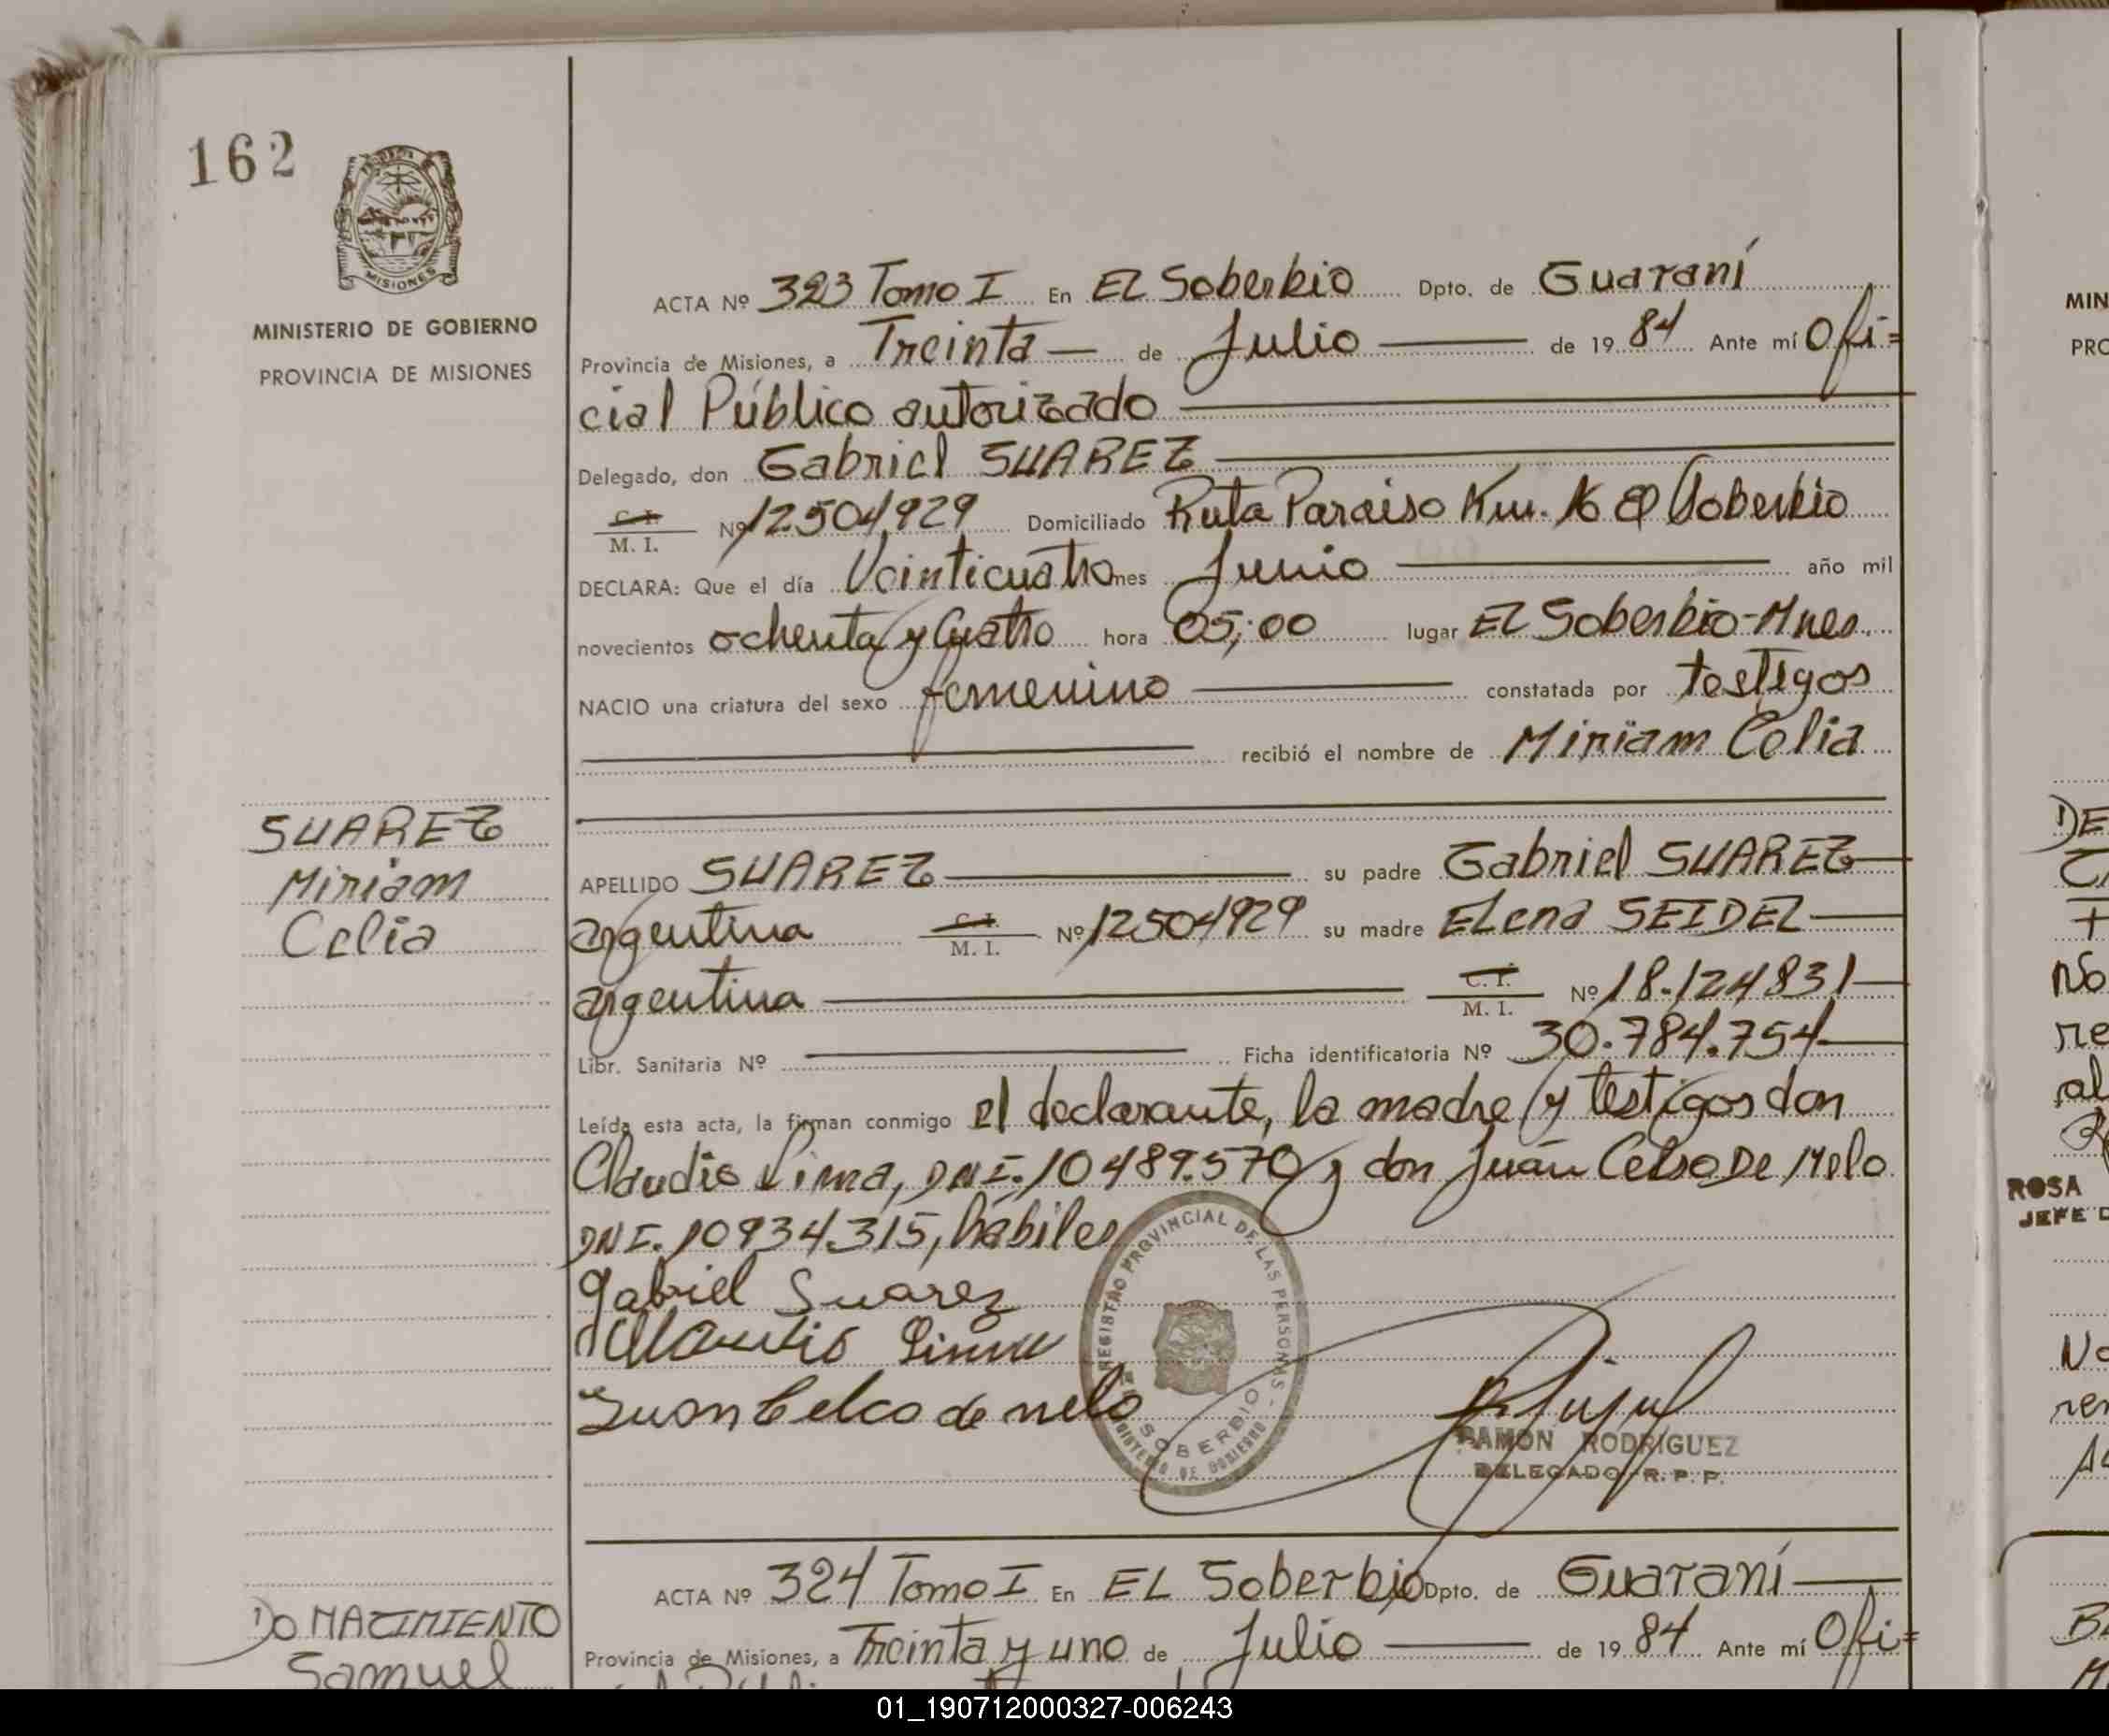 162
MISIONES
MINISTERIO DE GOBIERNO
PROVINCIA DE MISIONES
ACTA Nº 323 Tomo I En EL Soberbio Dpto. de Guaraní
Provincia de Misiones, a Treinta — de Julio — de 19 84 Ante mí Ofi=
cial Público autorizado
Delegado, don Gabriel SUAREZ
C. I. M. I. Nº 12504929 Domiciliado Ruta Paraiso Km. 16 El Soberbio
DECLARA: Que el día Veinticuatro mes Junio año mil
novecientos ochenta y Cuatro hora 05;00 lugar EL Soberbio-Mnes.
NACIO una criatura del sexo femenino constatada por testigos
recibió el nombre de Miriam Celia
SUAREZ
Miriam
Celia
APELLIDO SUAREZ su padre Gabriel SUAREZ
argentina C. I. M. I. Nº 12504929 su madre ELena SEIDEL
argentina C. I. M. I. Nº 18.124831
Libr. Sanitaria Nº Ficha identificatoria Nº 30.784.754
Leída esta acta, la firman conmigo el declarante, la madre y testigos don
Claudio Lima, DNI. 10489.570 y don Juan Celso De Melo
DNI. 10934315, hábiles
Gabriel Suarez
Claudio Lima
Juan Celco de melo
REGISTRO PROVINCIAL DE LAS PERSONAS
SOBERBIO
MINISTERIO DE GOBIERNO
RAMON RODRIGUEZ
DELEGADO R. P. P.
ACTA Nº 324 Tomo I En EL Soberbio Dpto. de Guaraní
Provincia de Misiones, a Treinta y uno de Julio de 19 84 Ante mí Ofi=
DO NACIMIENTO
Samuel
MIN
PRO
DE
No
re
al
ROSA
JEFE D
No
ren
01_190712000327-006243